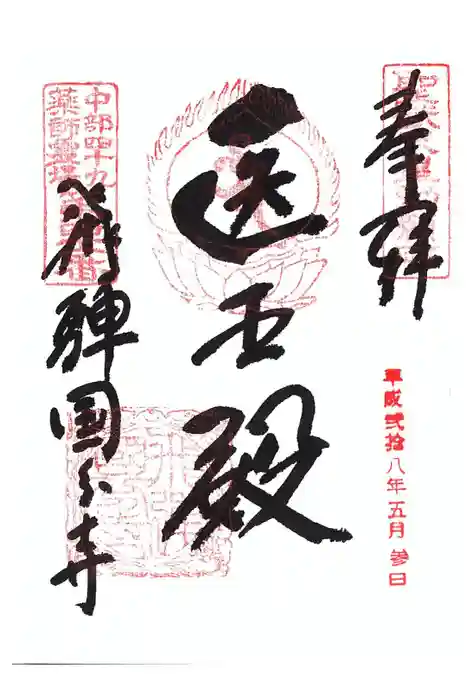 奉拝
平成弐拾八年五月参日
医王殿
中部四十九
薬師霊場
飛騨国分寺